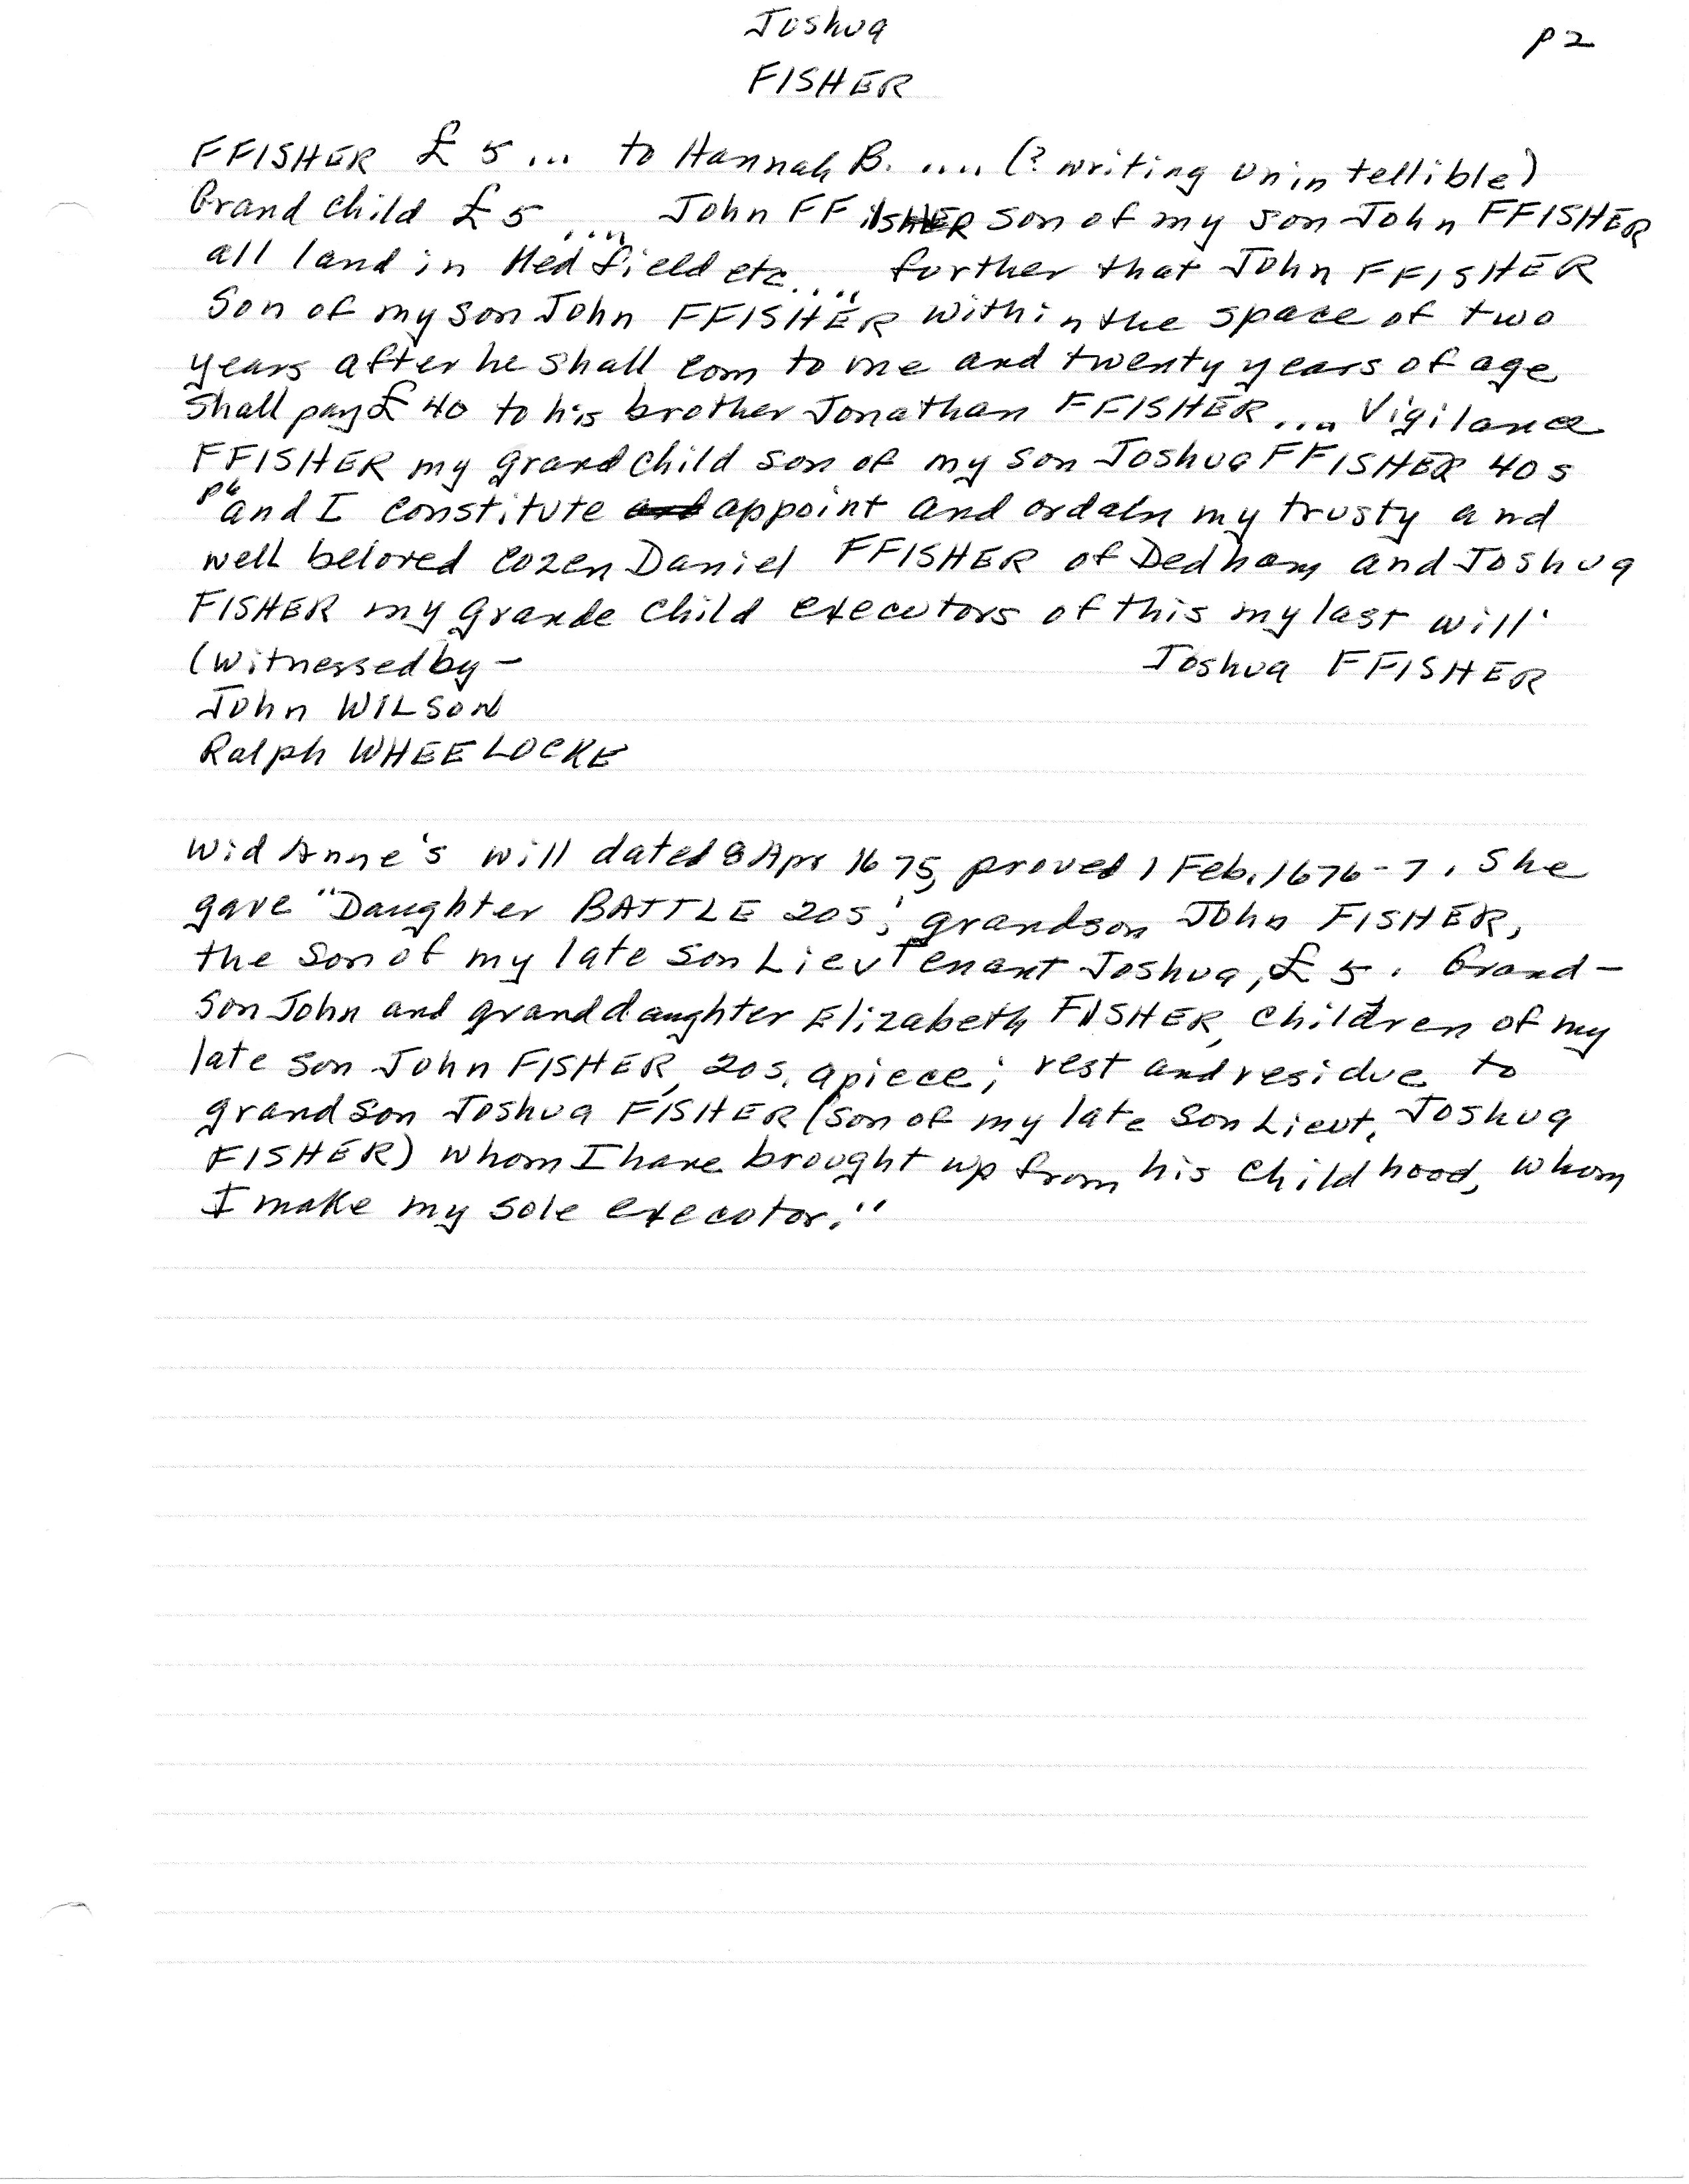 Joshua
p 2
FISHER
FFISHER £ 5 ... to Hannah B. .... (? writing unintellible)
Grand child £ 5 .... John FFISHER son of my son John FFISHER
all land in Medfield etc.... further that John FFISHER
Son of my son John FFISHER within the space of two
years after he shall com to one and twenty years of age
shall pay £ 40 to his brother Jonathan FFISHER ... Vigilance
FFISHER my grand child son of my son Joshua FFISHER 40 s
"and I constitute and appoint and ordaln my trusty and
well beloved cozen Daniel FFISHER of Dedham and Joshua
FISHER my grande child executors of this my last will"
(witnessed by - Joshua FFISHER
John WILSON
Ralph WHEELOCKE
Wid Anne's will dated 8 Apr 1675, proved 1 Feb. 1676-7. She
gave "Daughter BATTLE 20s; grandson John FISHER,
the son of my late son Lievtenant Joshua, £ 5. Grand-
son John and granddaughter Elizabeth FISHER, children of my
late son John FISHER, 20s. apiece; rest and residue to
grandson Joshua FISHER (son of my late son Lieut. Joshua
FISHER) whom I have brought up from his childhood, whom
I make my sole executor."